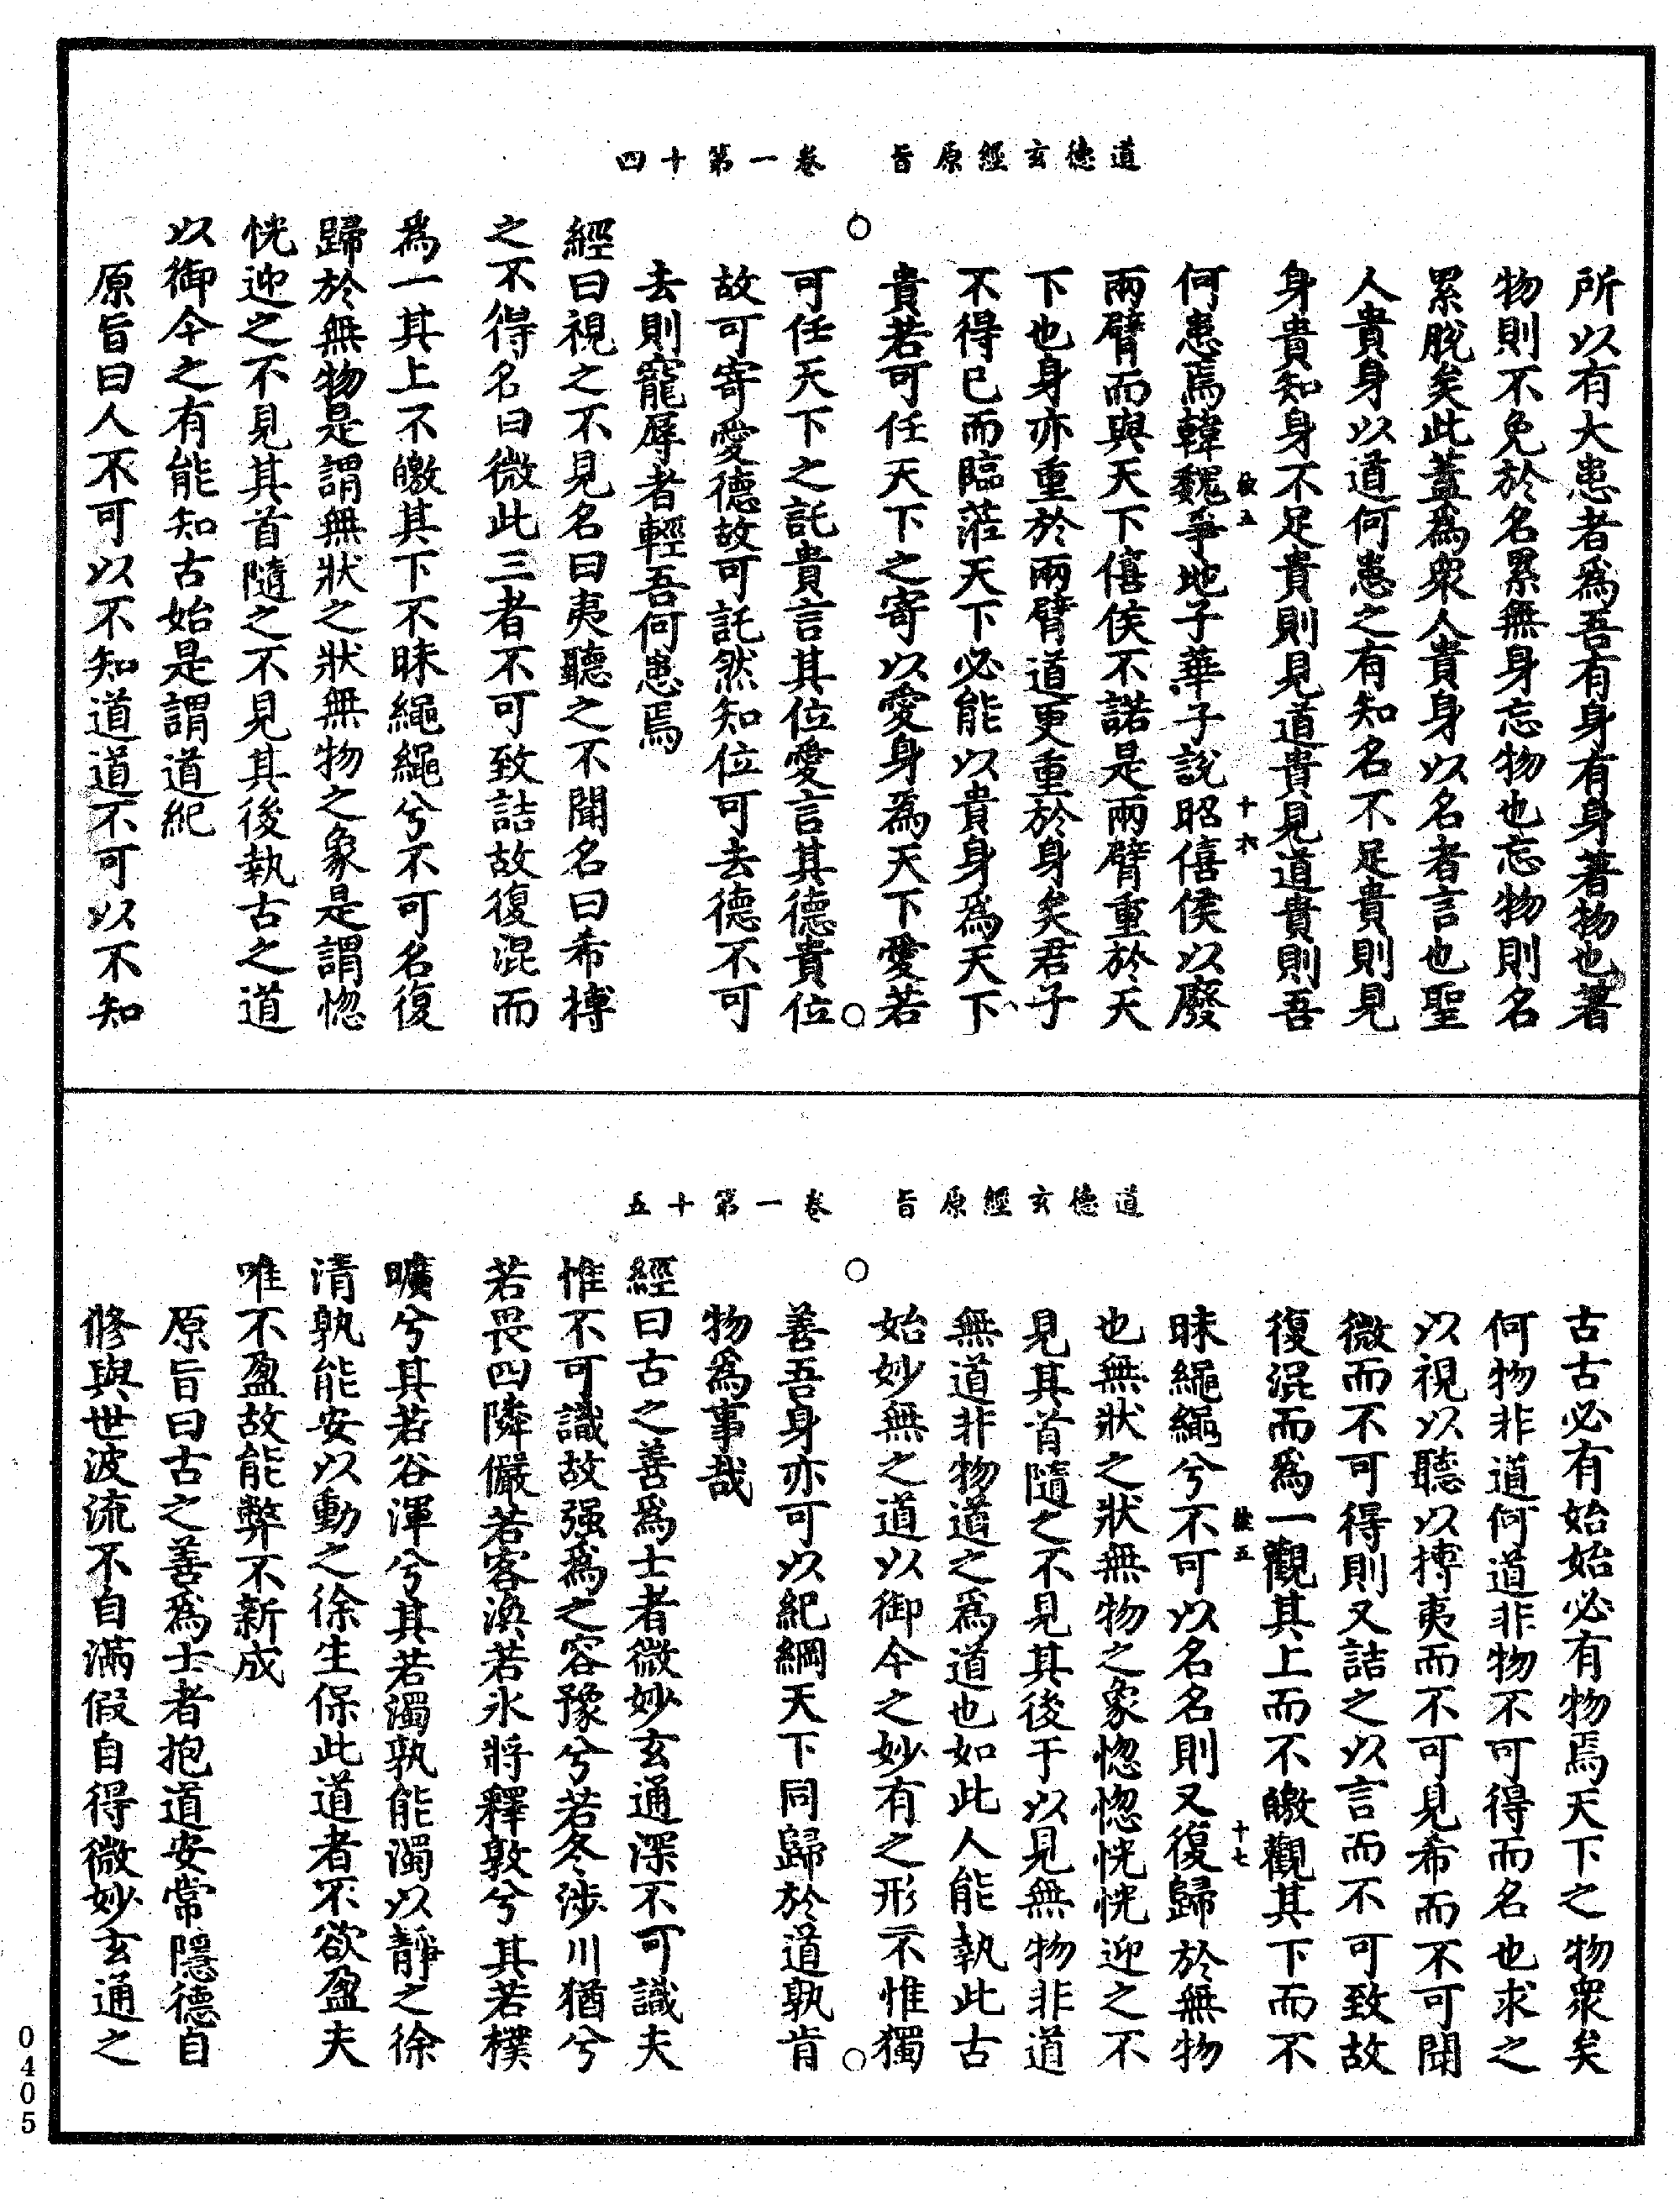 道德玄經原旨　卷一第十四
所以有大患者爲吾有身有身著物也著
物則不免於名累無身忘物也忘物則名
累脫矣此蓋爲衆人貴身以名者言也聖
人貴身以道何患之有知名不足貴則見
身貴知身不足貴則見道貴見道貴則吾
十六
何患焉韓魏爭地子華子說昭僖侯以廢
兩臂而與天下僖侯不諾是兩臂重於天
下也身亦重於兩臂道更重於身矣君子
不得已而臨莅天下必能以貴身爲天下
貴若可任天下之寄以愛身爲天下愛若
可任天下之託貴言其位愛言其德貴位
故可寄愛德故可託然知位可去德不可
去則寵辱者輕吾何患焉
經曰視之不見名曰夷聽之不聞名曰希搏
之不得名曰微此三者不可致詰故復混而
爲一其上不皦其下不昧繩繩兮不可名復
歸於無物是謂無狀之狀無物之象是謂惚
恍迎之不見其首隨之不見其後執古之道
以御今之有能知古始是謂道紀
原旨曰人不可以不知道道不可以不知
道德玄經原旨　卷一第十五
古古必有始始必有物焉天下之物衆矣
何物非道何道非物不可得而名也求之
以視以聽以搏夷而不可見希而不可聞
微而不可得則又詰之以言而不可致故
復混而爲一觀其上而不皦觀其下而不
十七
昧繩繩兮不可以名名則又復歸於無物
也無狀之狀無物之象惚惚恍恍迎之不
見其首隨之不見其後于以見無物非道
無道非物道之爲道也如此人能執此古
始妙無之道以御今之妙有之形不惟獨
善吾身亦可以紀綱天下同歸於道孰肯
物爲事哉
經曰古之善爲士者微妙玄通深不可識夫
惟不可識故强爲之容豫兮若冬涉川猶兮
若畏四隣儼若客渙若氷將釋敦兮其若樸
曠兮其若谷渾兮其若濁孰能濁以靜之徐
清孰能安以動之徐生保此道者不欲盈夫
唯不盈故能弊不新成
原旨曰古之善爲士者抱道安常隱德自
修與世波流不自滿假自得微妙玄通之
0405